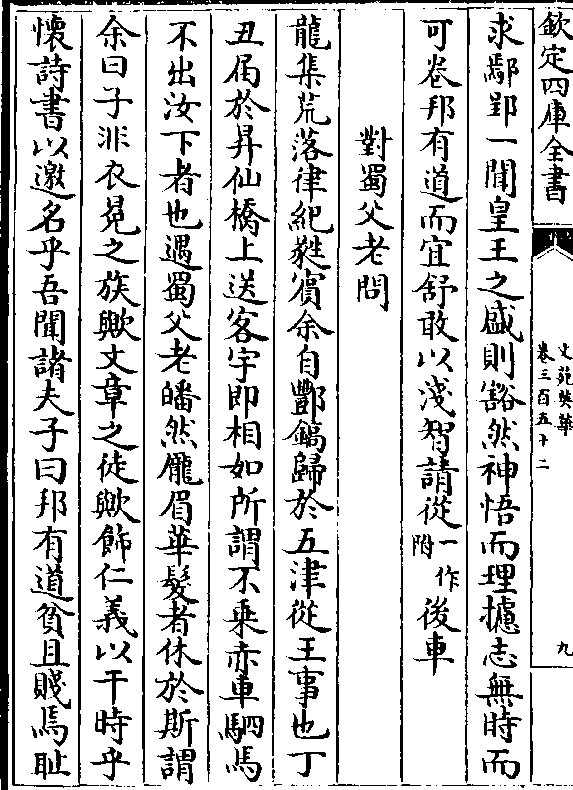 欽定四庫全書
文苑英華
卷三百五十二
九
求鄢郢一聞皇王之盛則豁然神悟而理攄志無時而
可卷邦有道而宜舒敢以淺智請從一作附後車
對蜀父老問
龍集荒落律紀蕤賓余自酆鎬歸於五津從王事也丁
丑届於昇仙橋上送客亭即相如所謂不乗赤車駟馬
不出汝下者也遇蜀父老皤然龎眉華髮者休於斯謂
余曰子非衣冕之族歟文章之徒歟飾仁義以干時乎
懷詩書以邀名乎吾聞諸夫子曰邦有道貧且賤焉耻